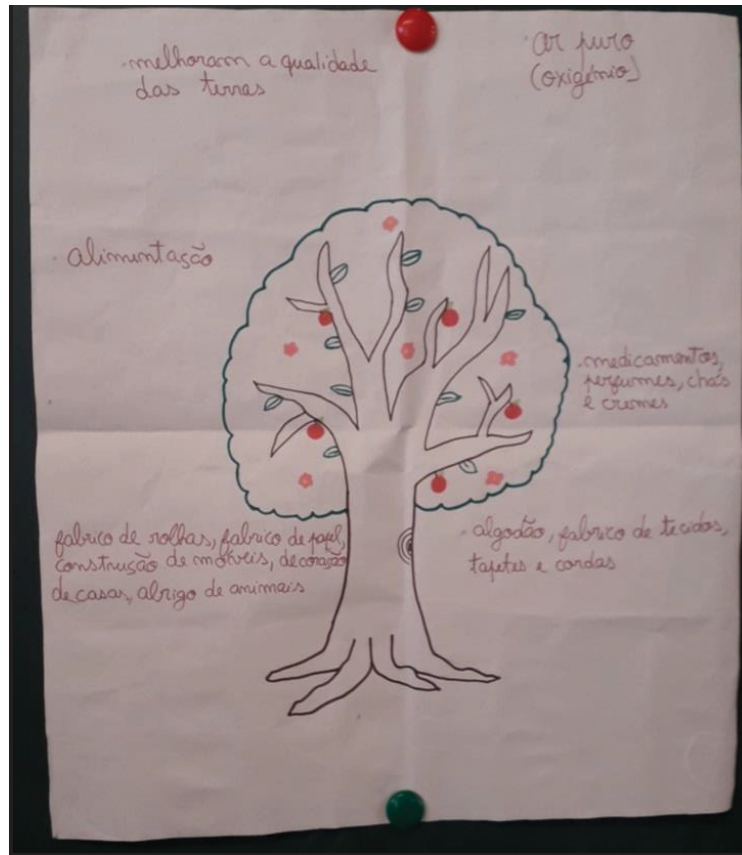 . melhoram a qualidade
das terras
. ar puro
(oxigénio)
. alimentação
. medicamentos,
perfumes, chás
e cremes
fabrico de rolhas, fabrico de papel,
construção de móveis, decoração
de casas, abrigo de animais
. algodão, fabrico de tecidos,
tapetes e cordas